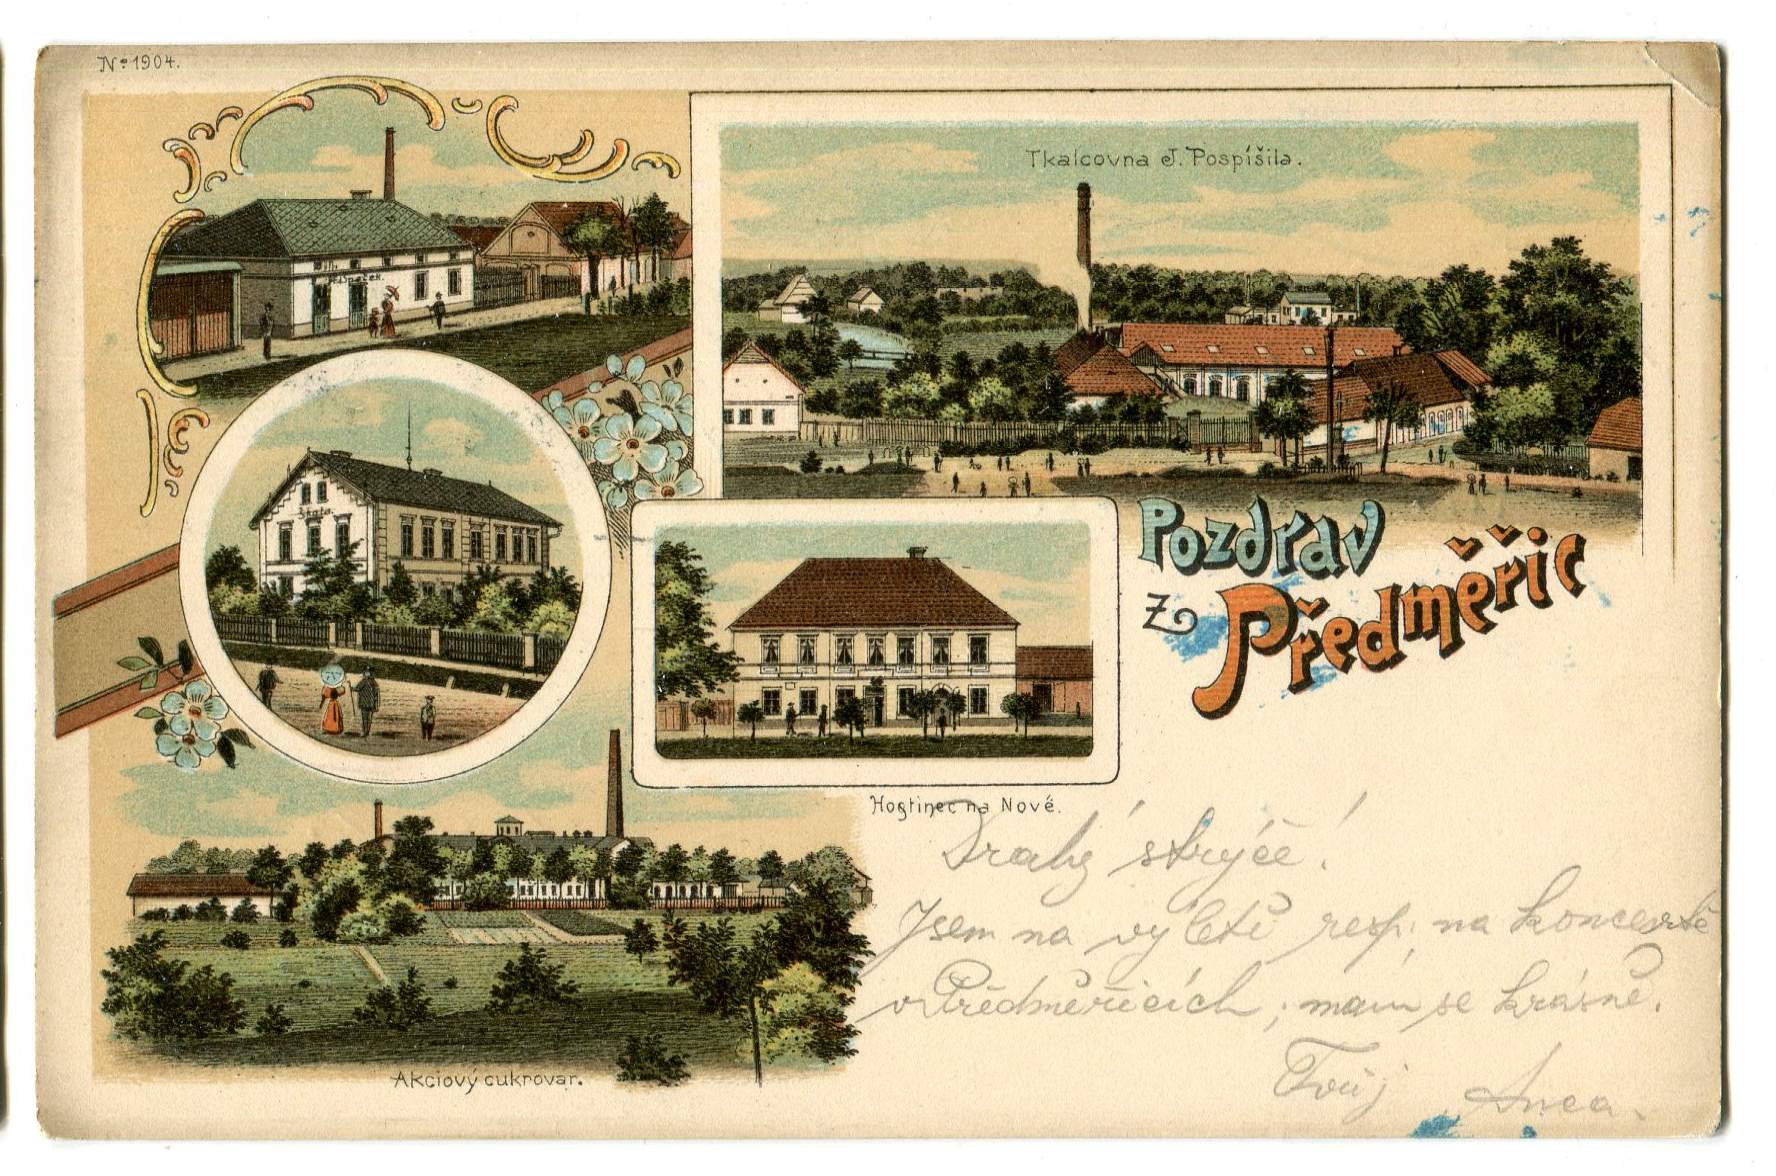 Nº 1904.
Tkalcovna J. Pospíšila.
Škola.
Pozdrav
z Předměřic
Hostinec na Nové.
Drahý strýče!
Jsem na výletě resp. na koncertě
v Předměřicích, mám se krásně.
Tvůj Anca.
Akciový cukrovar.